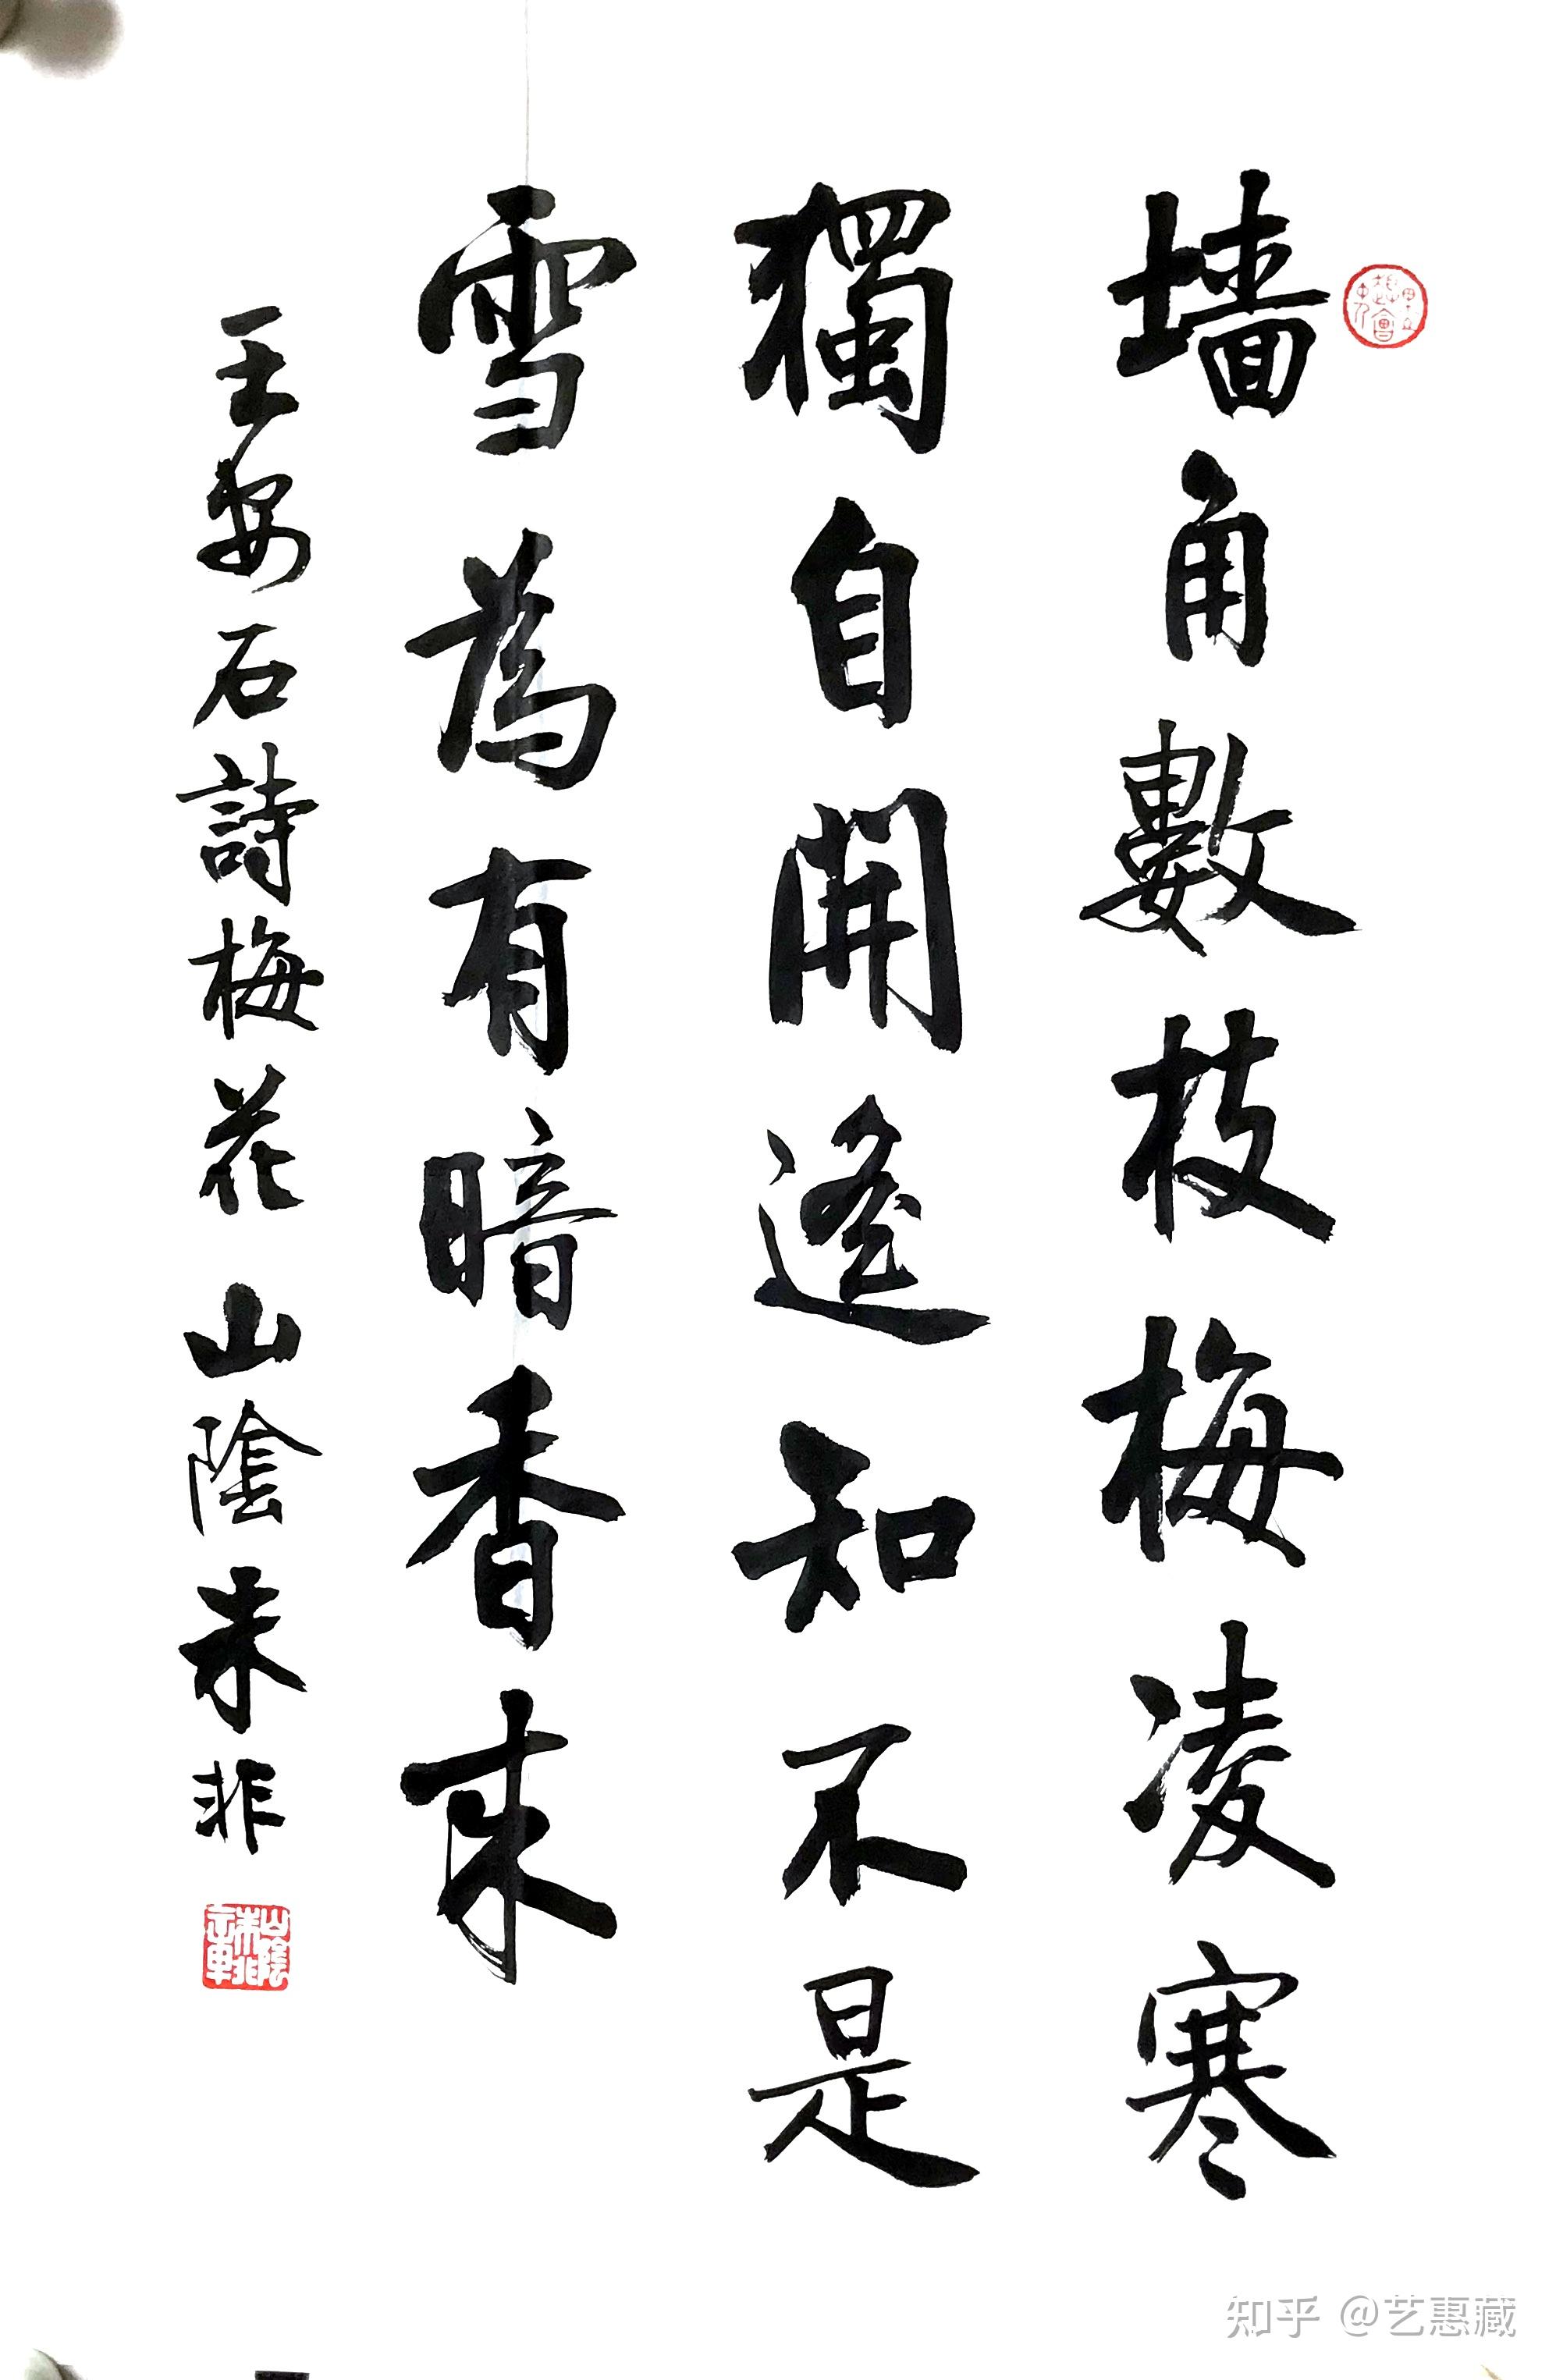 墙角數枝梅凌寒
獨自開遙知不是
雪為有暗香来
王安石詩梅花 山陰朱非
知乎 @艺惠藏